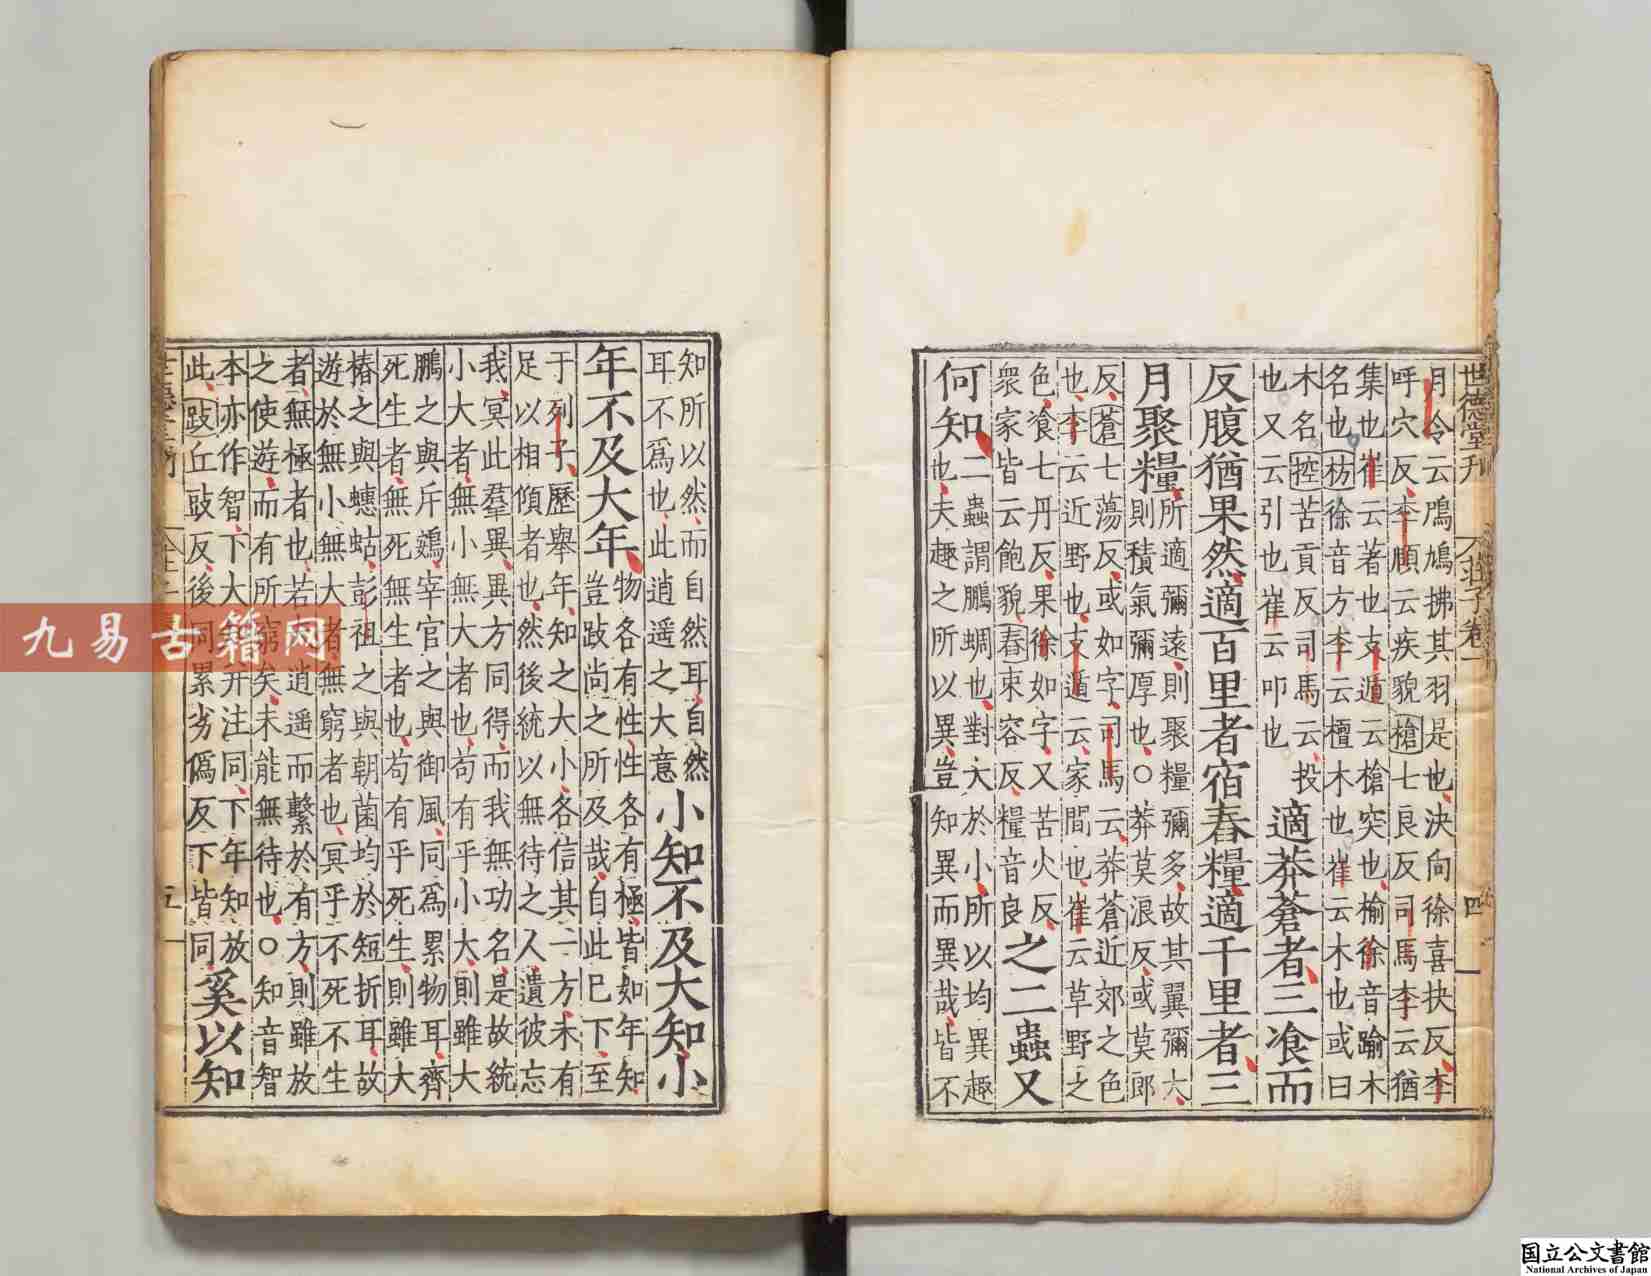 世德堂刊 莊子卷一 四
月令云鳲鳩拂其羽是也決向徐喜抉反李
呼穴反李頤云疾貌槍七良反司馬李云猶
集也崔云著也支遁云槍突也榆徐音踰木
名也枋徐音方李云檀木也崔云木也或曰
木名控苦貢反司馬云投
也又云引也崔云叩也
適莽蒼者三飡而
反腹猶果然適百里者宿舂糧適千里者三
月聚糧
所適彌遠則聚糧彌多故其翼彌大
則積氣彌厚也○莽莫浪反或莫郎
反蒼七蕩反或如字司馬云莽蒼近郊之色
也李云近野也支遁云家間也崔云草野之
色飡七丹反果徐如字又苦火反
衆家皆云飽貌舂束容反糧音良
之二蟲又
何知
二蟲謂鵬蜩也對大於小所以均異趣
也夫趣之所以異豈知異而異哉皆不
知所以然而自然耳自然
耳不爲也此逍遥之大意
小知不及大知小
年不及大年
物各有性性各有極皆如年知
豈跂尚之所及哉自此巳下至
于列子歷舉年知之大小各信其一方未有
足以相傾者也然後統以無待之人遺彼忘
我冥此羣異異方同得而我無功名是故統
小大者無小無大者也苟有乎小大則雖大
鵬之與斥鷃宰官之與御風同爲累物耳齊
死生者無死無生者也苟有乎死生則雖大
椿之與蟪蛄彭祖之與朝菌均於短折耳故
遊於無小無大者無窮者也冥乎不死不生
者無極者也若夫逍遥而繫於有方則雖放
之使遊而有所窮矣未能無待也○知音智
本亦作智下大知并注同下年知放
此跂丘豉反後同累劣僞反下皆同
奚以知
五
九易古籍网
国立公文書館
National Archives of Japan